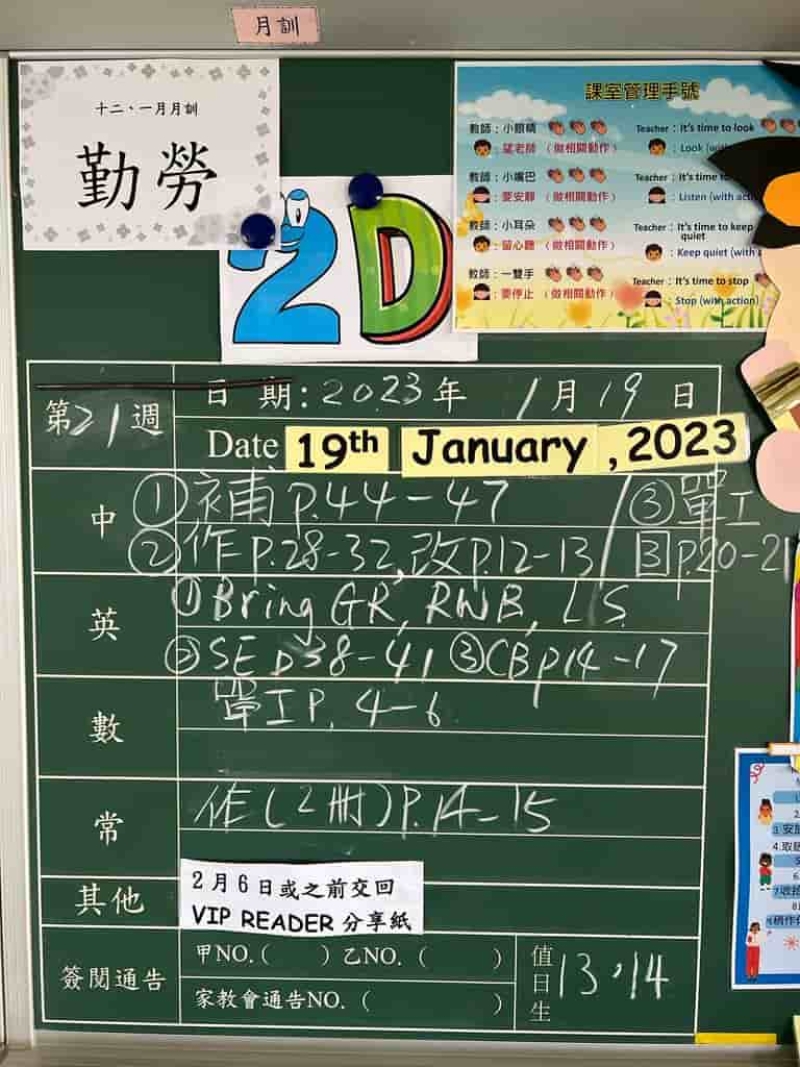 月訓
十二、一月月訓
勤勞
2D
課室管理手號
教師：小眼睛
：望老師 （做相關動作）
教師：小嘴巴
：要安靜 （做相關動作）
教師：小耳朵
：留心聽 （做相關動作）
教師：一雙手
：要停止 （做相關動作）
Teacher：It's time to look
：Look
Teacher：It's time
：Listen (with
Teacher：It's time to keep
quiet
：Keep quiet (with
Teacher：It's time to stop
：Stop (with action)
第21週
日 期：2023年 1月19日
Date 19th January , 2023
中
①補 P.44-47 / ③單工
②作P.28-32,改P.12-13/ P.20-21
英
①Bring GR, RWB, LS
②SE p38-41 ③CBp14-17
數
單工P. 4-6
常
作(2冊)P.14-15
其他
2月6日或之前交回
VIP READER 分享紙
簽閱通告
甲NO.( ) 乙NO. ( )
家教會通告NO. ( )
值日生 13,14